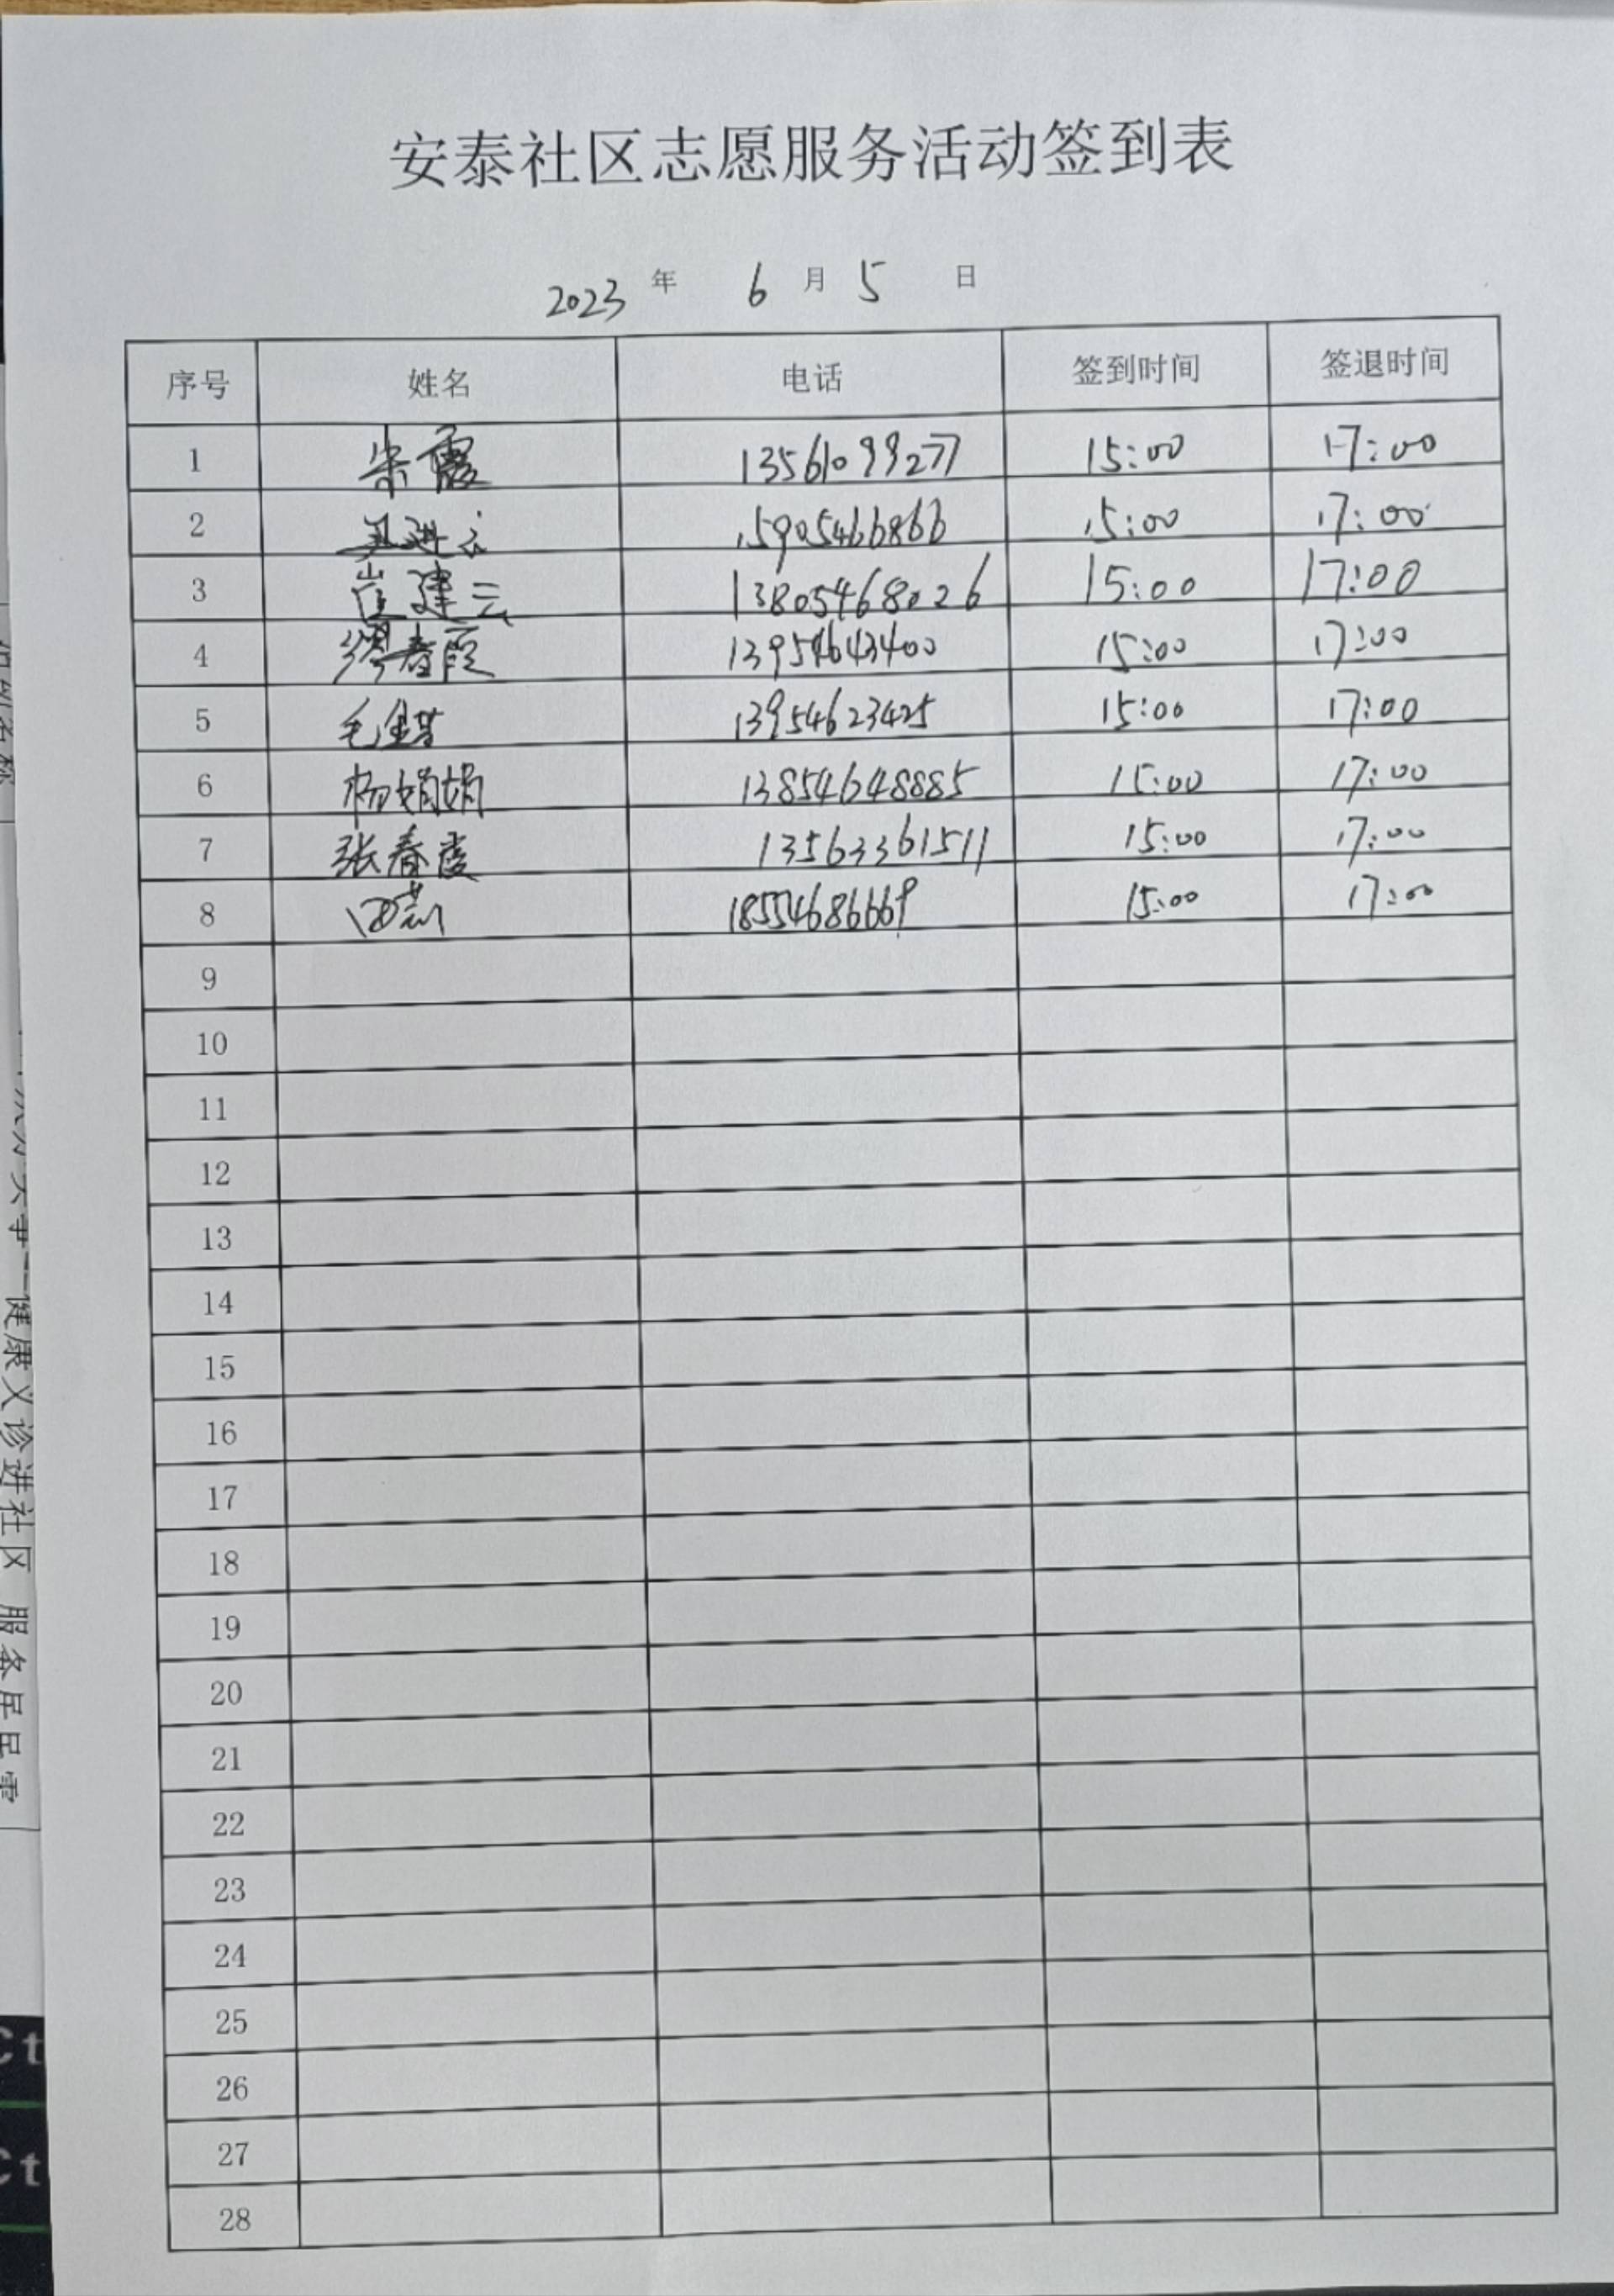 安泰社区志愿服务活动签到表
2023 年 6 月 5 日
序号 姓名 电话 签到时间 签退时间
1 宋霞 13561099277 15:00 17:00
2 15905466866 15:00 17:00
3 崔建云 13805468026 15:00 17:00
4 春霞 13954643400 15:00 17:00
5 毛 13954623425 15:00 17:00
6 杨娟娟 13854648885 15:00 17:00
7 张春霞 13563361511 15:00 17:00
8 18554686669 15:00 17:00
9
10
11
12
13
14
15
16
17
18
19
20
21
22
23
24
25
26
27
28
健康义诊进社区 服务居民需
Ct
Ct